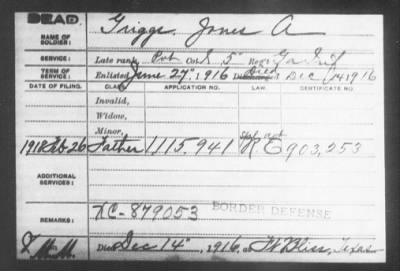 DEAD.
NAME OF SOLDIER: Griggs, Jones A
SERVICE: Late rank, Pvt Co. 5" Reg't Ga Inf
TERM OF SERVICE: Enlisted June 27", 1916 Died Dec 14 1916
DATE OF FILING. CLASS. APPLICATION NO. LAW. CERTIFICATE NO.
Invalid,
Widow,
Minor,
1918 Feb 26 Father 1,115,941 903,253
ADDITIONAL SERVICES:
REMARKS: XC-879053 BORDER DEFENSE
Died Dec 14", 1916, at Ft Bliss, Texas